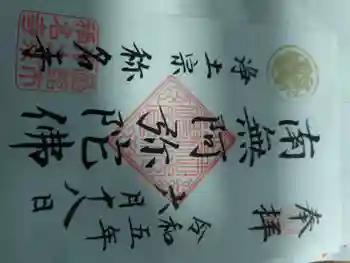 奉拝
令和五年
六月十八日
南無阿弥陀佛
浄土宗
称名寺